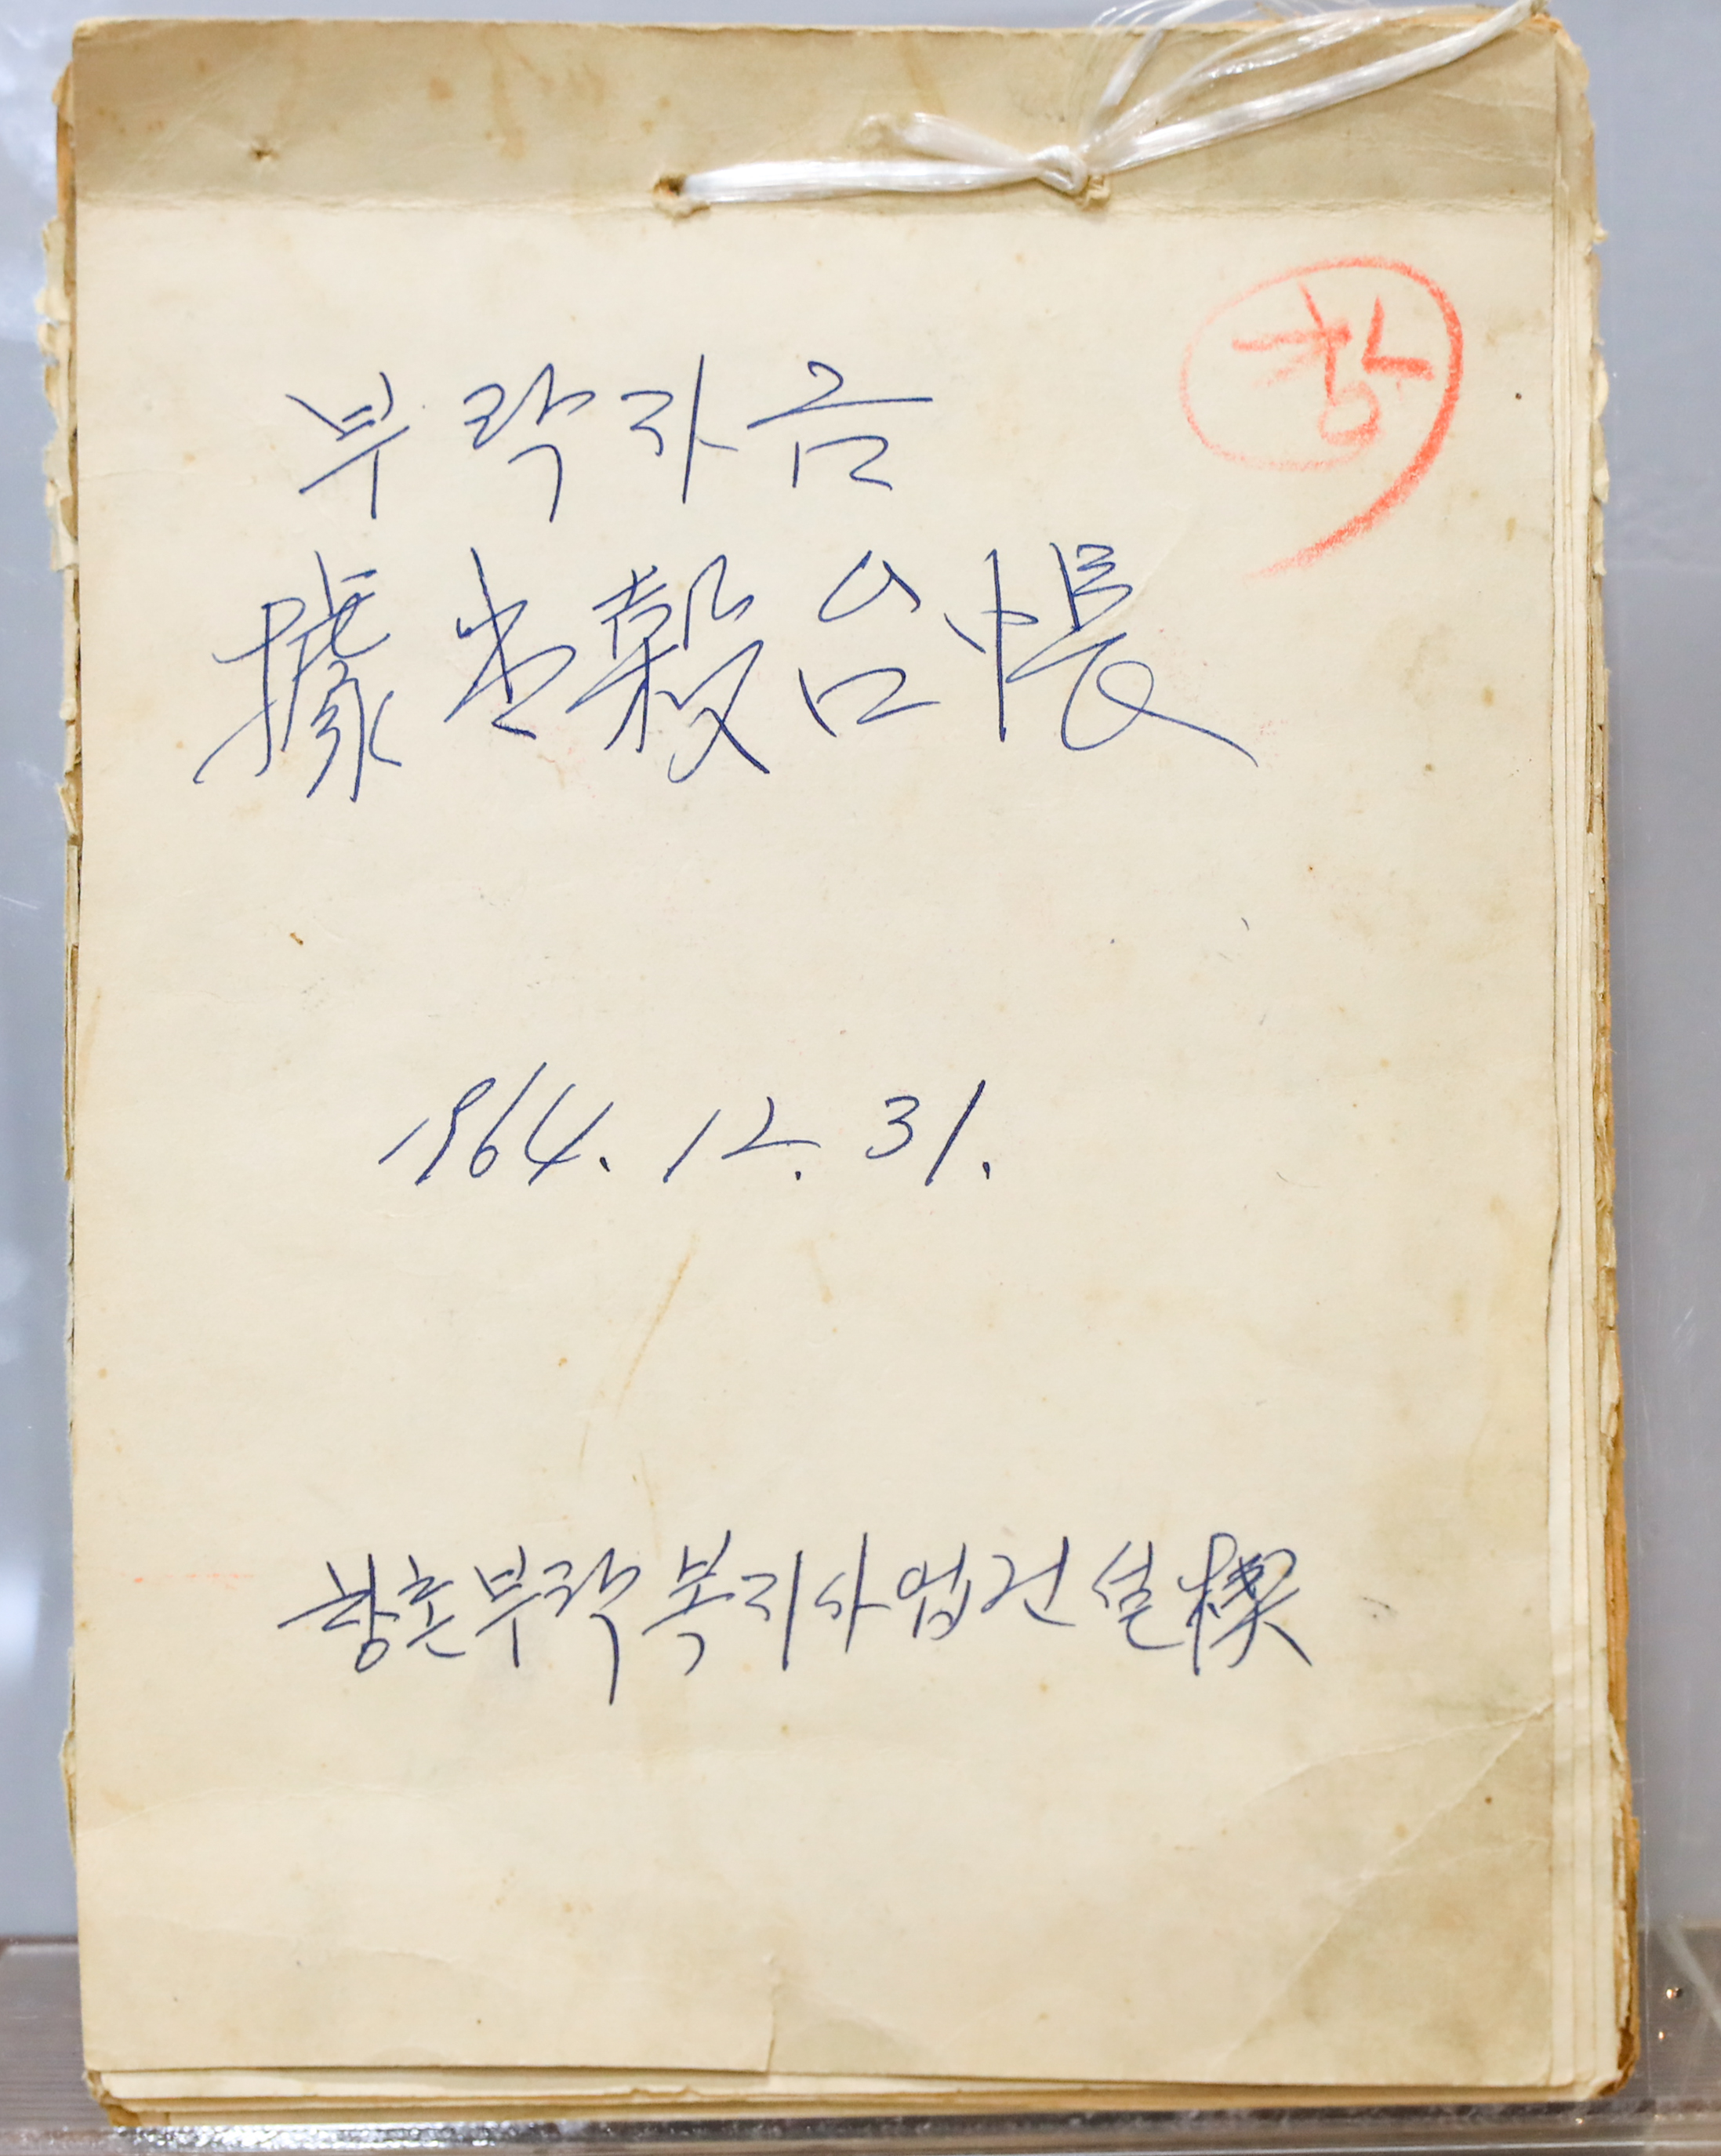 창
부락자금
據出穀台帳
1964. 12. 31.
창촌부락복지사업건설楔